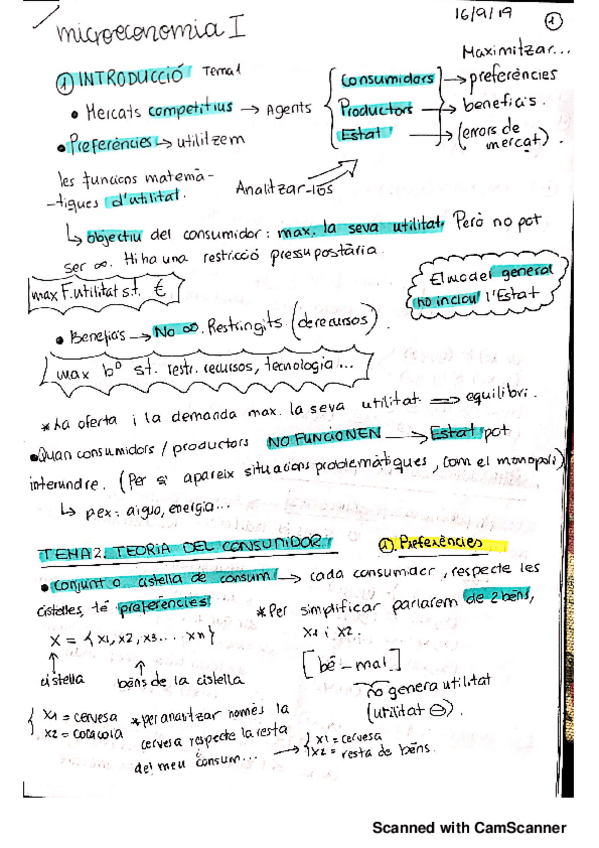 16/9/19 1
microeconomia I
Maximitzar...
① INTRODUCCIÓ Tema 1
Consumidors → preferències
• Mercats competitius → Agents
Productors → beneficis.
Estat → (errors de mercat).
• Preferències → utilitzem
les funcions matemà-
-tiques d'utilitat.
Analitzar-los
↳ objectiu del consumidor: max. la seva utilitat. Però no pot
ser ∞. Hi ha una restricció pressupostària.
max F. utilitat s.t. €.
El model general
no inclou l'Estat
• Beneficis → No ∞. Restringits (de recursos).
max bº st. restr. recursos, tecnologia...
* La oferta i la demanda max. la seva utilitat ⇒ equilibri.
• Quan consumidors / productors NO FUNCIONEN → Estat pot
intervindre. (Per si apareix situacions problemàtiques, com el monopoli)
↳ pex: aigua, energia...
TEMA 2. TEORIA DEL CONSUMIDOR
a) Preferències
• conjunt o cistella de consum → cada consumidor, respecte les
cistelles, té preferències
* Per simplificar parlarem de 2 béns,
X = {x1, x2, x3... xn}
x1 i x2.
[bé - mal]
cistella béns de la cistella
no genera utilitat
(utilitat ⊖).
x1 = cervesa * per analitzar només la
x2 = cocacola cervesa respecte la resta
del meu consum... → x1 = cervesa
x2 = resta de béns.
Scanned with CamScanner